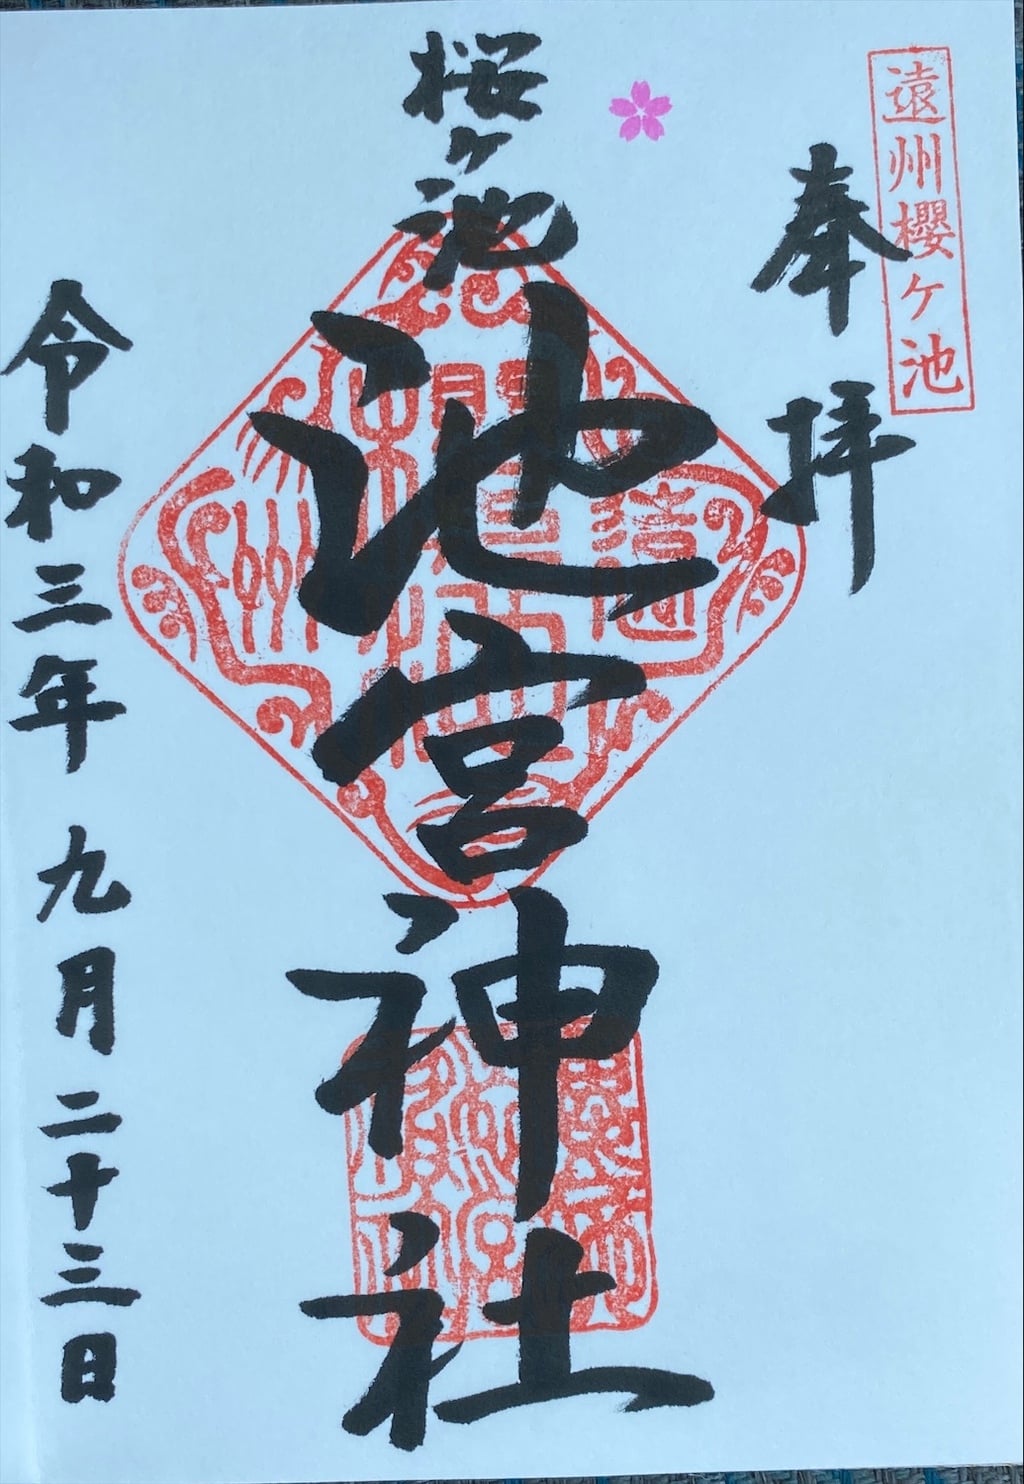 遠州櫻ケ池
奉拝
桜ヶ池
池宮神社
令和三年九月二十三日